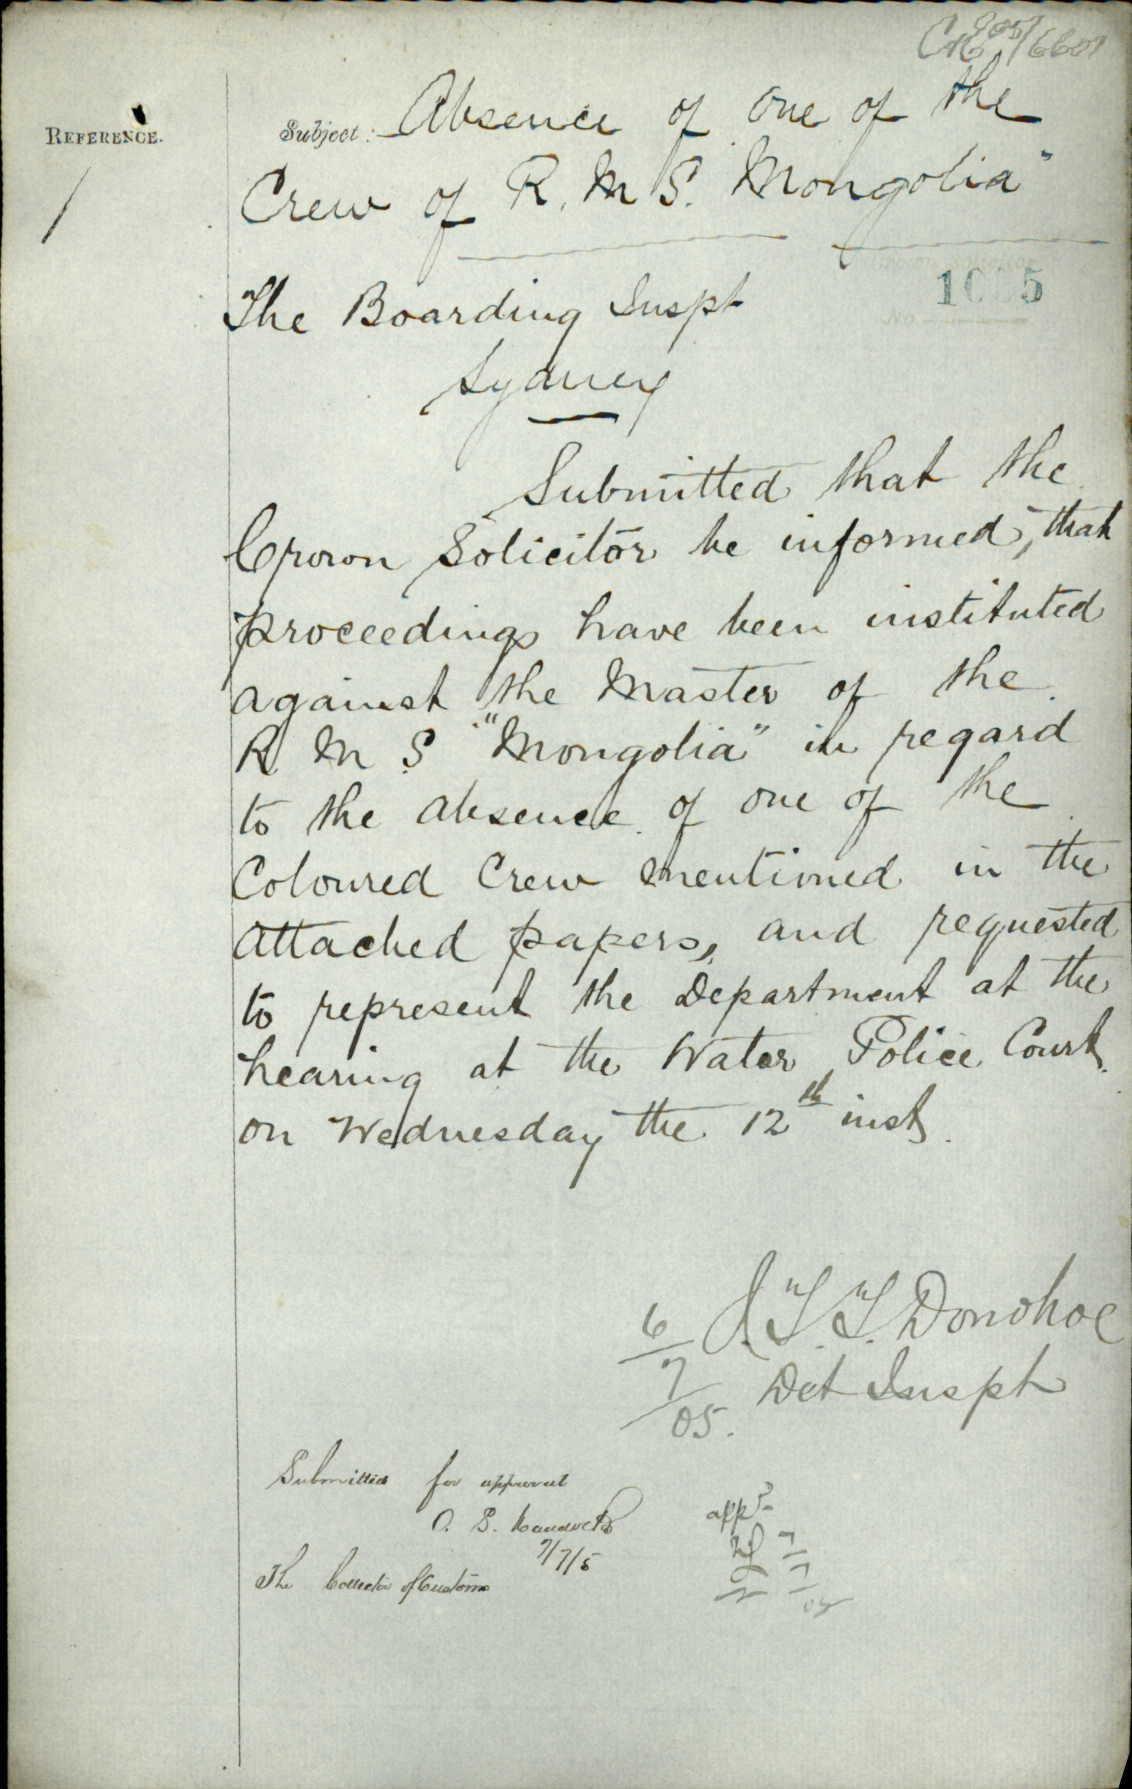 REFERENCE.
Subject:- Absence of one of the
Crew of R. M S. Mongolia"
The Boarding Inspt
Sydney
Submitted that the
Crown Solicitor be informed, that
proceedings have been instituted
against the Master of the
R M S "Mongolia" in regard
to the absence of one of the
Coloured Crew mentioned in the
attached papers, and requested
to represent the Department at the
hearing at the Water Police Court
on Wednesday the 12th inst.
J. T. T. Donohoe
Det Inspt
6/7/05.
Submitted for approval
7/7/5
The Collector of Customs
appd